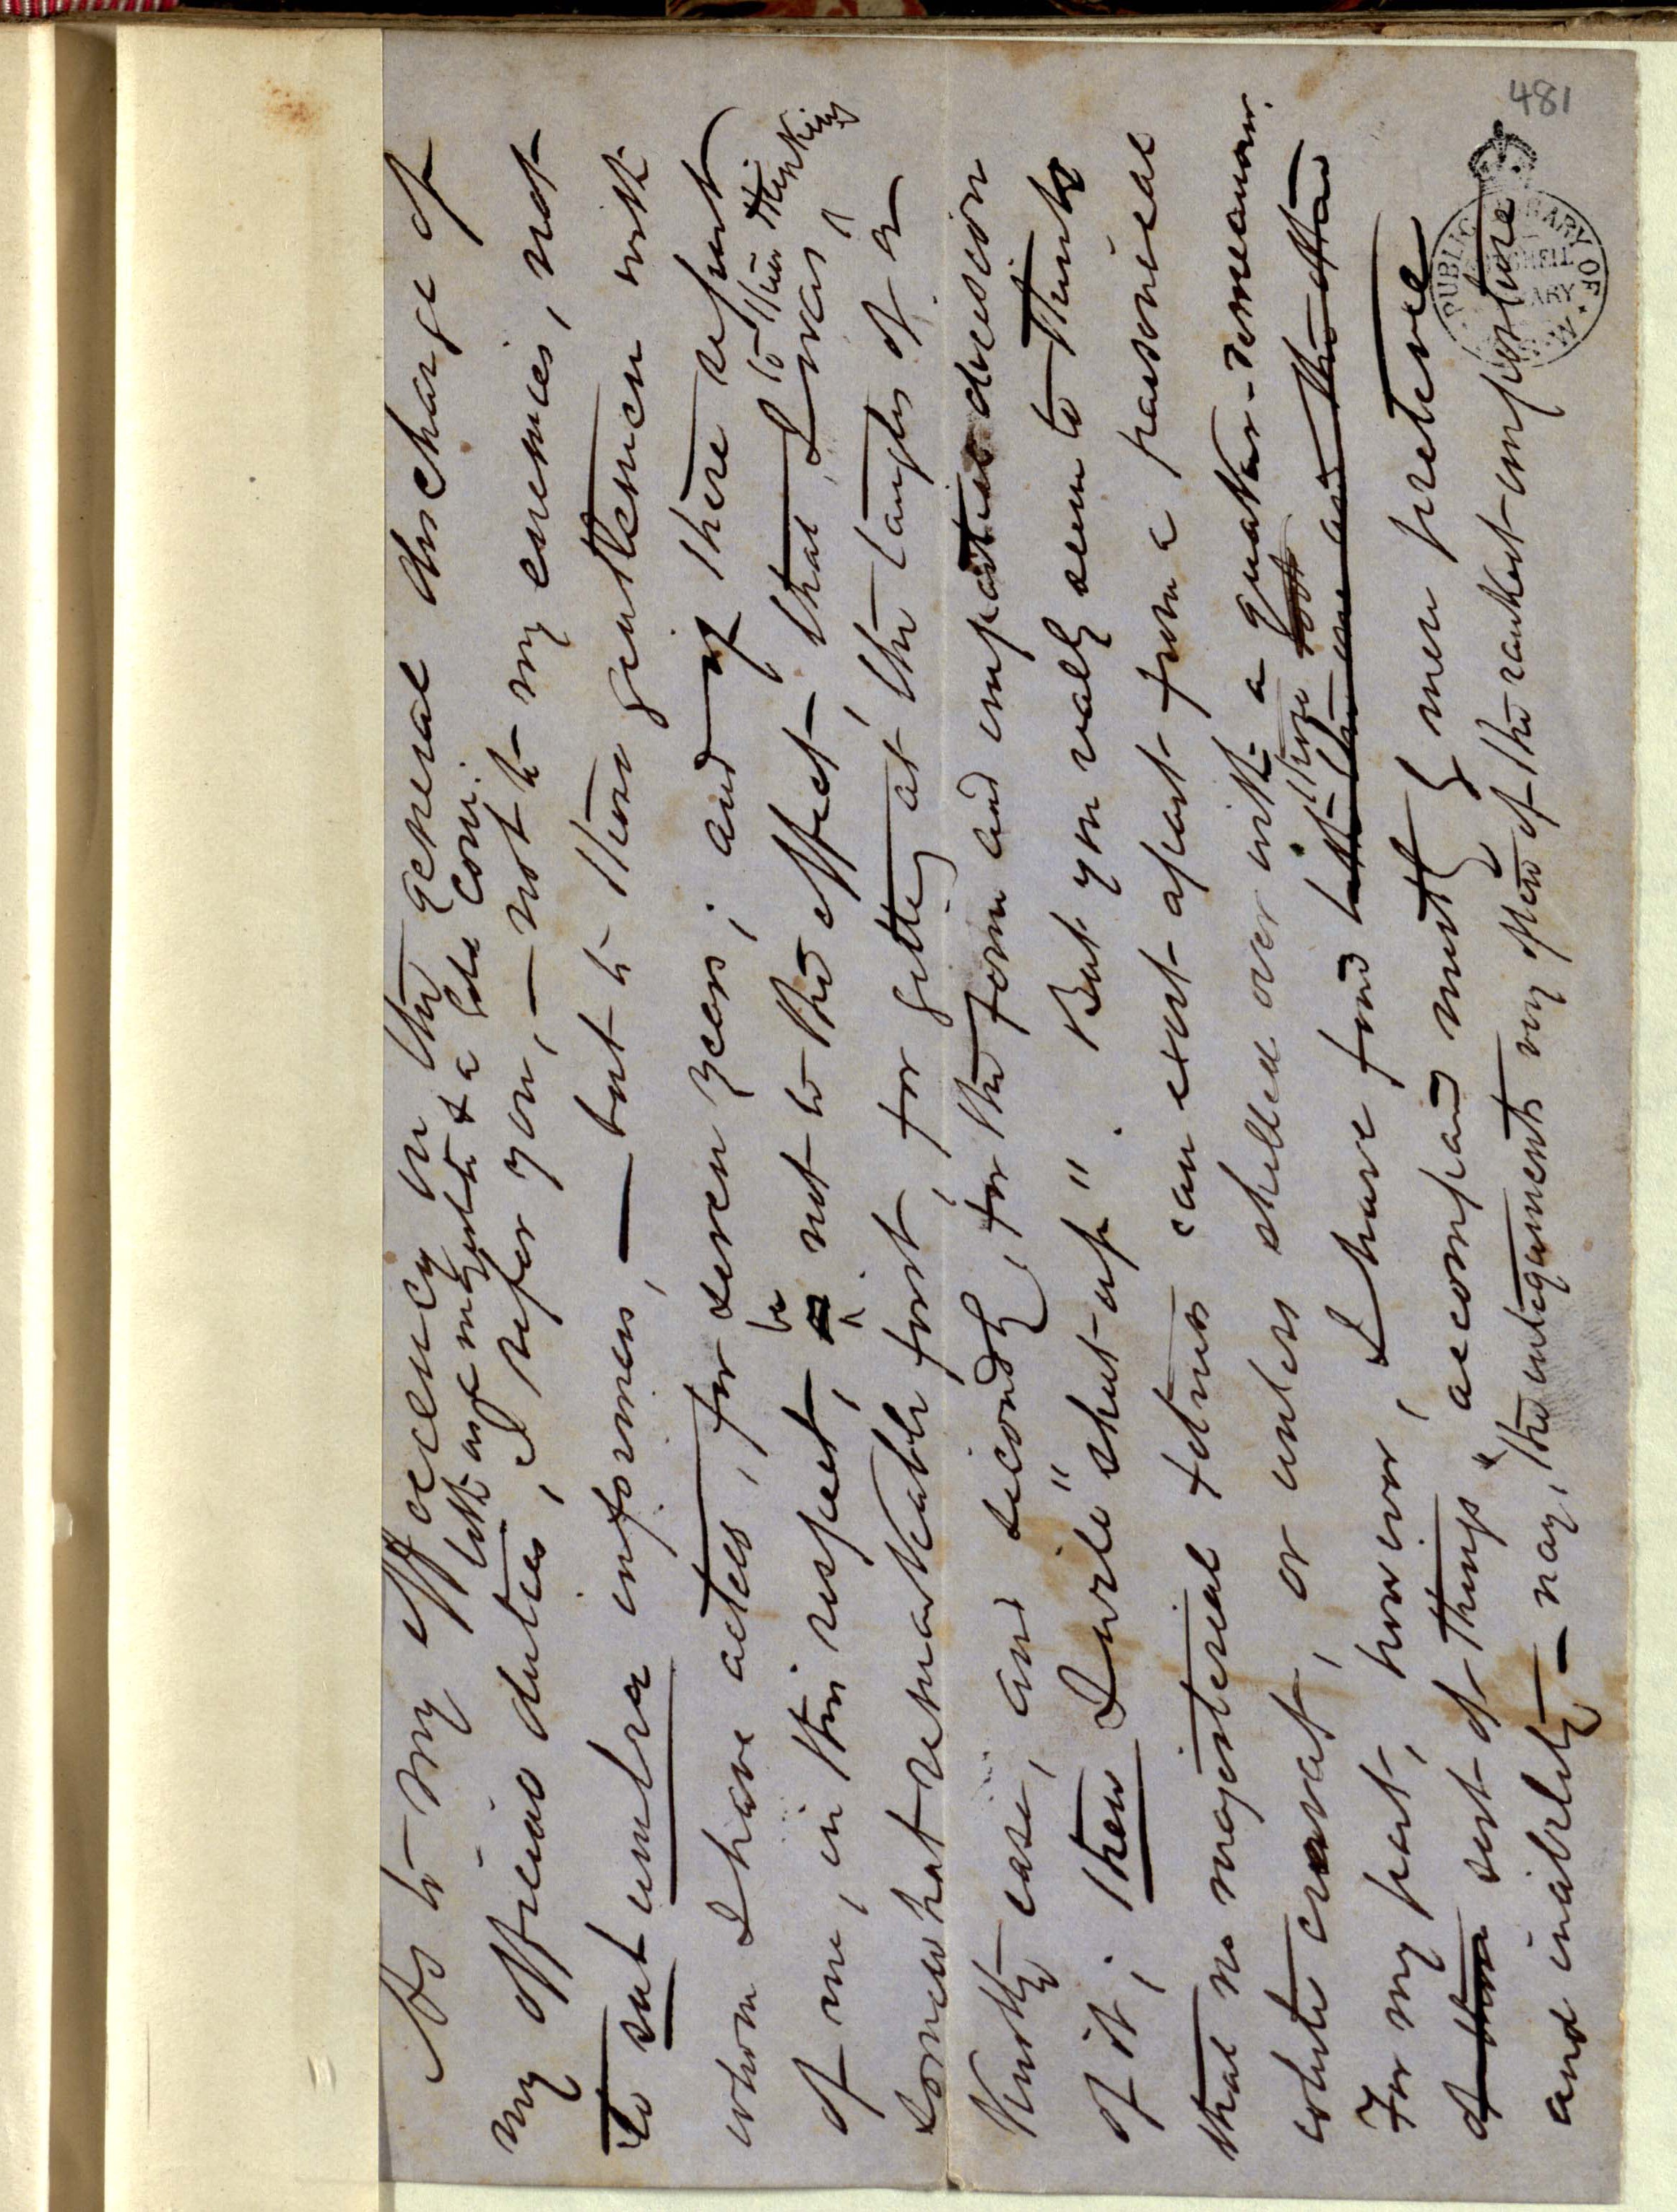 481
As to my efficiency in the general discharge of
both as a magistrate & a Gold Comr.
my official duties, I refer you, — not to my enemies, not
to sub umbra informers, — but to those gentlemen with
whom I have acted, for seven years; and if there report
be to their thinking
of me, in this respect, not to the effect that I was
somewhat remarkable first, for getting at the tangles of a
knotty case, and secondly, for the form and impartial decision
of it; then I will "shut-up". But you really seem to think
that no magisterial fitness can exist apart from a parsonical
white cravat, or unless shelled over with a quaker-demeanour.
these
For my part, however, I have found both the one and the other
sort of things accompanied mostly mere pretence
and inability — nay, the integuments very often of the rankest imposture
PUBLIC LIBRARY OF